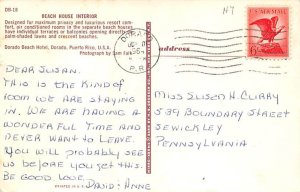 DB-18
BEACH HOUSE INTERIOR
Designed for maximum privacy and luxurious resort comfort, air conditioned rooms in the separate beach houses, have individual terraces or balconies opening directly on palm-shaded lawns and crescent beaches.
Dorado Beach Hotel, Dorado, Puerto Rico, U.S.A.
Photography by Sam Falk
H7
U.S. AIR MAIL
6¢
P.R.
address
DEAR SUSAN.
THIS IS THE KIND OF
ROOM WE ARE STAYING
IN. WE ARE HAVING A
WONDERFUL TIME AND
NEVER WANT TO LEAVE.
YOU WILL PROBABLY SEE
US BEFORE YOU GET THIS
BE GOOD LOVE.
DAVID & ANNE
MISS SUSEN H. CURRY
539 BOUNDARY STREET
SEWICKLEY
PENNSYLVANIA.